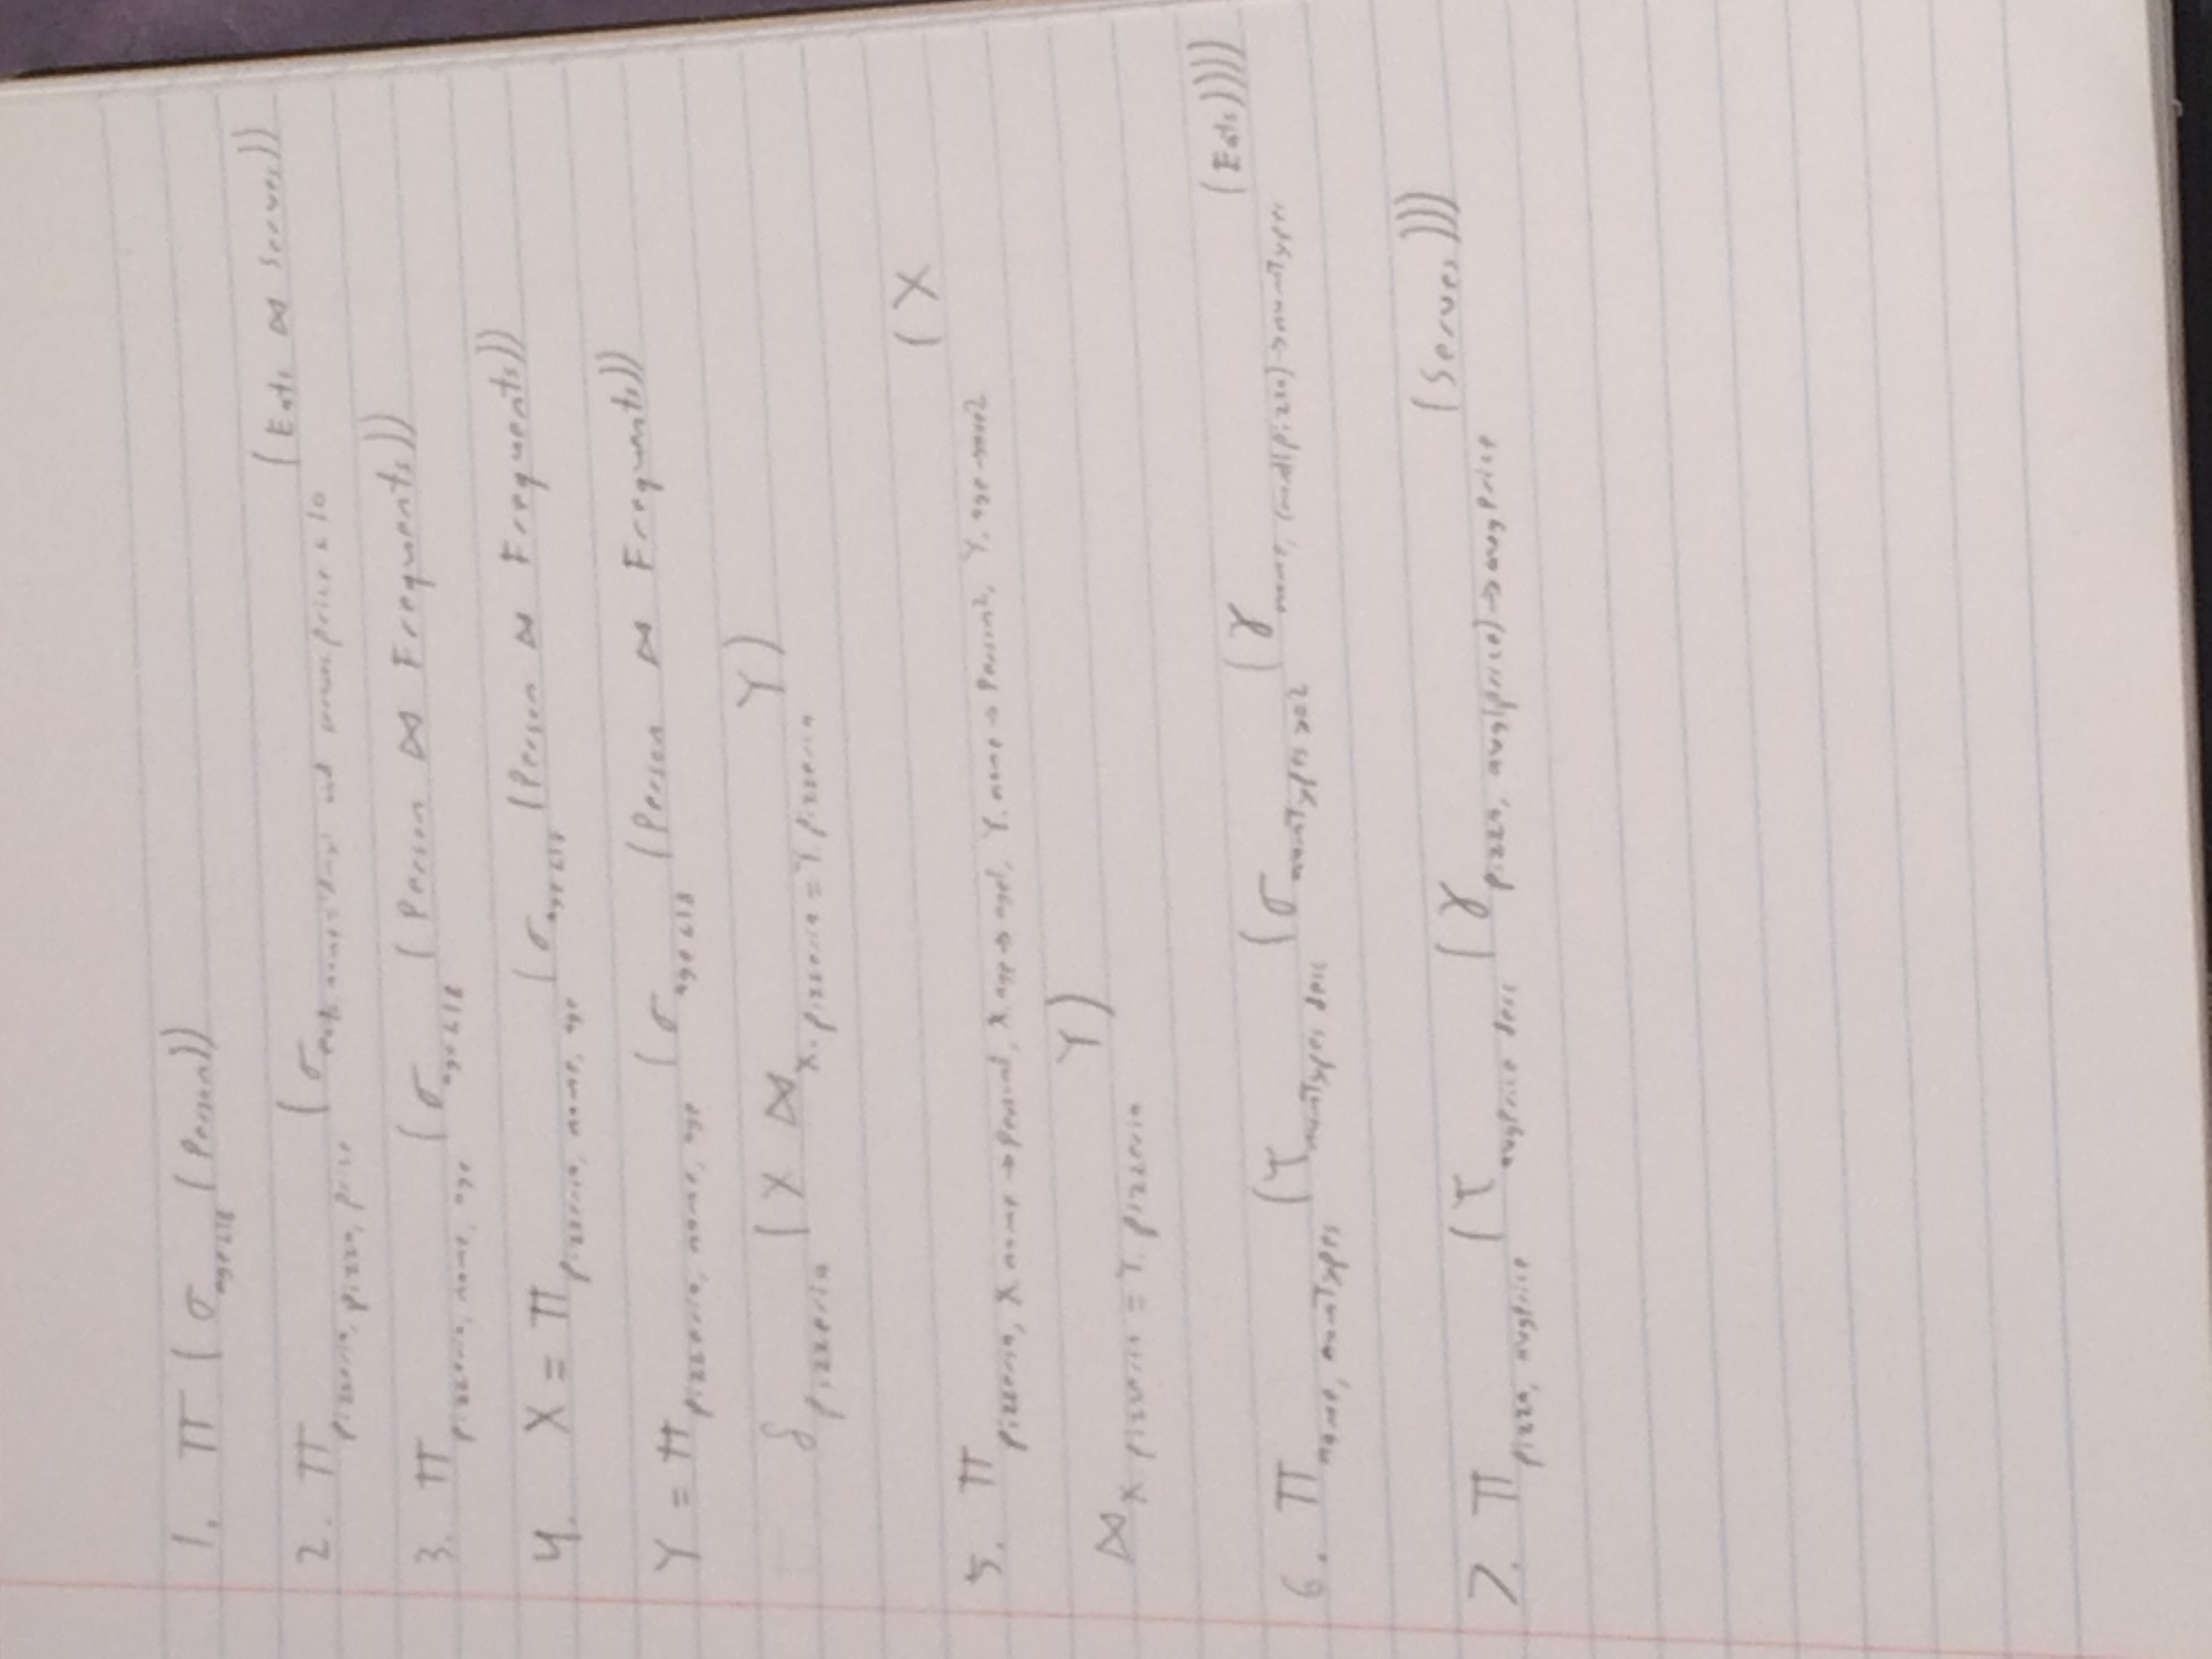 1. π (σ age<18 (Person))
2. π pizzeria, pizza, price (σ eats.name='Amy' and serves.price < 10 (Eats ⋈ Serves))
3. π pizzeria, name, age (σ age<18 (Person ⋈ Frequents))
4. X = π pizzeria, name, age (σ age<18 (Person ⋈ Frequents))
Y = π pizzeria, name, age (σ age<18 (Person ⋈ Frequents))
δ pizzeria (X ⋈ X.pizzeria = Y.pizzeria Y)
5. π pizzeria, X.name → Person1, X.age → age1, Y.name → Person2, Y.age → (X
⋈ X.pizzeria = Y.pizzeria Y)
6. π name, numTypes (τ numTypes desc (σ numTypes >=2 (γ name, count(pizza) → numTypes (Eats))))
7. π pizza, avgPrice (τ avgPrice desc (γ pizza, avg(price) → avgPrice (Serves)))